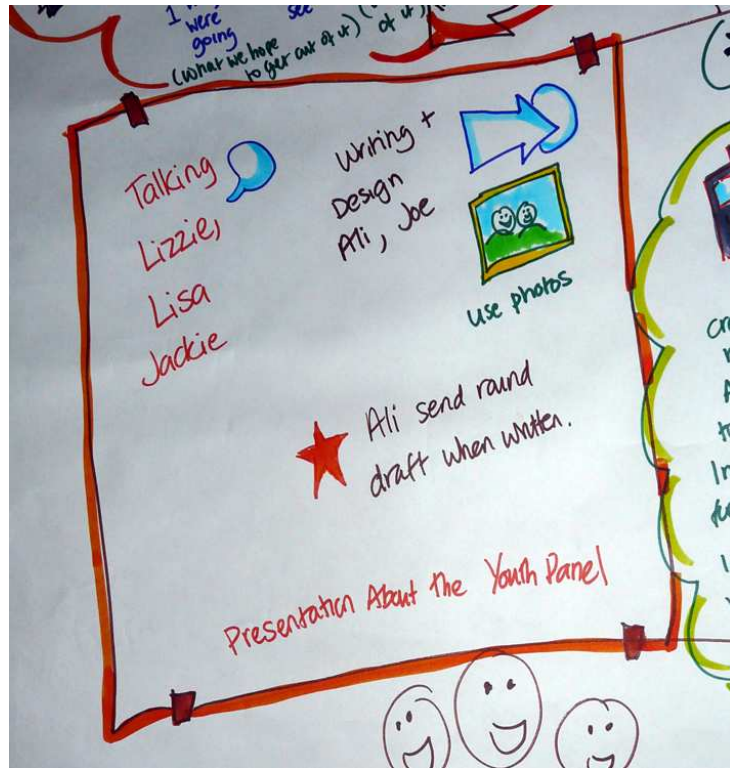 were
going
see
(What we hope
to get out of it)
of it)
Talking
Lizzie,
Lisa
Jackie
Writing +
Design
Ali, Joe
use photos
Ali send round
draft when written.
Presentation About the Youth Panel